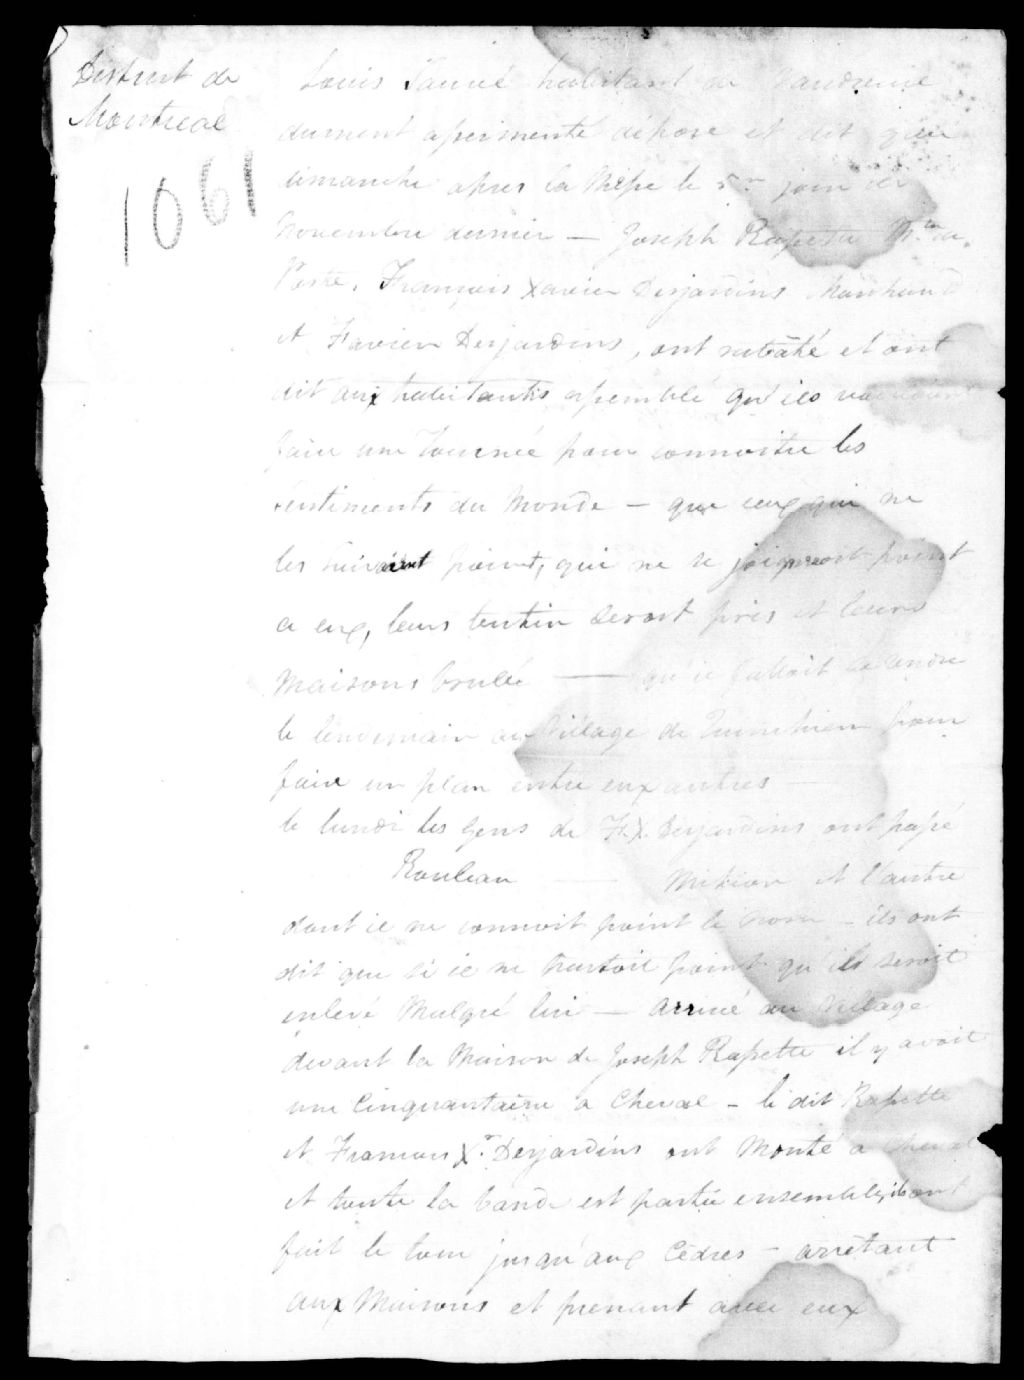 District de
Montreal
1061
Louis habitant de Vaudreuil
dument assermenté dépose et dit que
dimanche apres la Messe le 5me jour de
Novembre dernier — Joseph Rapette M.tre de
Poste, François Xavier Desjardins Marchand
et Favien Desjardins, ont arrêté et ont
dit aux habitants assemblé qu'ils
faire une Tournée pour connoitre les
sentiments du Monde — que ceux qui ne
les suivroient point, qui ne se joigneroit point
a eux, leurs butin seroit pris et leurs
Maisons brulée — qu'il falloit se rendre
le lendemain au Village de pour
faire un plan entre eux autres —
le lundi les gens de F.X. Desjardins ont passé
Rouleau — et l'autre
dont il ne connoit point le nom — ils ont
dit que si il ne point qu'ils seroit
enlevé Malgré lui — Arrivé au Village
devant la Maison de Joseph Rapette il y avoit
une Cinquantaine a Cheval — le dit Rapette
et François X.r Desjardins ont Monté a Cheval
et toute la bande est partie ensemble, ils ont
fait le tour jusqu'aux Cèdres — arrêtant
aux Maisons et prenant avec eux